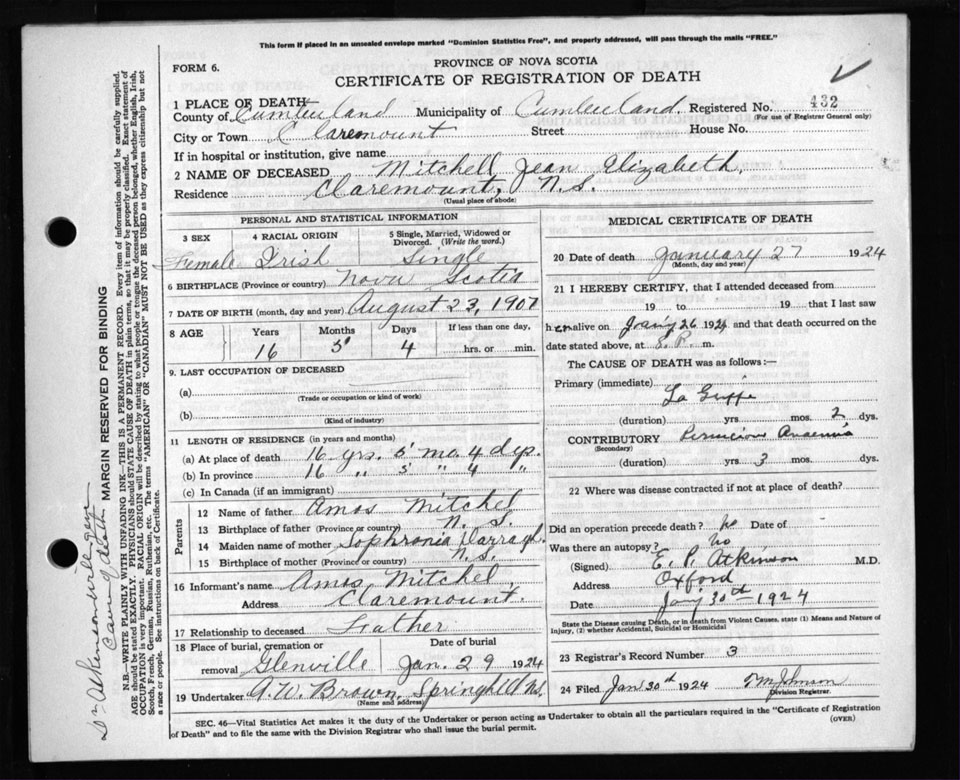 This form if placed in an unsealed envelope marked "Dominion Statistics Free", and properly addressed, will pass through the mails "FREE."
FORM 6.
PROVINCE OF NOVA SCOTIA
CERTIFICATE OF REGISTRATION OF DEATH
1 PLACE OF DEATH
County of Cumberland Municipality of Cumberland Registered No. 432
(For use of Registrar General only)
City or Town Claremount Street House No.
If in hospital or institution, give name
2 NAME OF DECEASED Mitchell, Jean Elizabeth.
Residence Claremount, N.S.
(Usual place of abode)
PERSONAL AND STATISTICAL INFORMATION
3 SEX 4 RACIAL ORIGIN 5 Single, Married, Widowed or Divorced. (Write the word.)
Female Irish Single
6 BIRTHPLACE (Province or country) Nova Scotia
7 DATE OF BIRTH (month, day and year) August 23, 1907
8 AGE Years Months Days If less than one day,
16 5 4 hrs. or min.
9. LAST OCCUPATION OF DECEASED
(a)
(Trade or occupation or kind of work)
(b)
(Kind of industry)
11 LENGTH OF RESIDENCE (in years and months)
(a) At place of death 16 yrs. 5 mo. 4 dys.
(b) In province 16 " 5 " 4 "
(c) In Canada (if an immigrant)
Parents
12 Name of father Amos Mitchel
13 Birthplace of father (Province or country) N.S.
14 Maiden name of mother Sophronia Darragh
15 Birthplace of mother (Province or country) N.S.
16 Informant's name Amos Mitchel,
Address Claremount.
17 Relationship to deceased Father
18 Place of burial, cremation or removal Glenville Date of burial Jan. 29 1924
19 Undertaker A.W. Brown, Springhill N.S.
(Name and address)
MEDICAL CERTIFICATE OF DEATH
20 Date of death January 27 1924
(Month, day and year)
21 I HEREBY CERTIFY, that I attended deceased from
19 to 19 that I last saw
her alive on Jan'y 26 1924 and that death occurred on the
date stated above, at 8.P. m.
The CAUSE OF DEATH was as follows:—
Primary (immediate) La Grippe
(duration) yrs. mos. 2 dys.
CONTRIBUTORY Pernicious Anaemia
(Secondary)
(duration) yrs 3 mos. dys.
22 Where was disease contracted if not at place of death?
Did an operation precede death? No Date of
Was there an autopsy? No
(Signed) E. P. Atkinson M.D.
Address Oxford
Date Jan'y 30th 1924
State the Disease causing Death, or in death from Violent Causes, state (1) Means and Nature of
Injury, (2) whether Accidental, Suicidal or Homicidal
23 Registrar's Record Number 3
24 Filed Jan 30th 1924 Johnson
Division Registrar.
SEC. 46—Vital Statistics Act makes it the duty of the Undertaker or person acting as Undertaker to obtain all the particulars required in the "Certificate of Registration
of Death" and to file the same with the Division Registrar who shall issue the burial permit.
(OVER)
MARGIN RESERVED FOR BINDING
N.B.—WRITE PLAINLY WITH UNFADING INK—THIS IS A PERMANENT RECORD. Every item of information should be carefully supplied.
AGE should be stated EXACTLY. PHYSICIANS should STATE CAUSE OF DEATH in plain terms, so that it may be properly classified. Exact statement of
OCCUPATION is very important. RACIAL ORIGIN will be described by stating to what people or tongue the deceased person belonged, whether English, Irish,
Scotch, French, German, Russian, Ruthenian, etc. The terms "AMERICAN" OR "CANADIAN" MUST NOT BE USED as they express citizenship but not
a race or people. See instructions on back of Certificate.
Dr. Atkinson will give
Cause of death